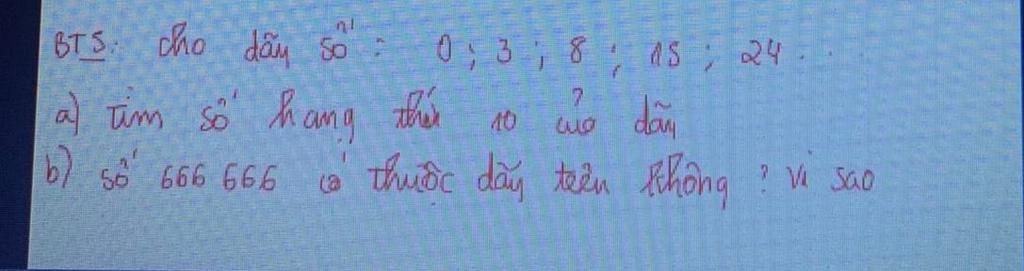 BT5: Cho dãy số : 0 ; 3 ; 8 ; 15 ; 24 ...
a) Tìm số hạng thứ 10 của dãy
b) số 666 666 có thuộc dãy trên không ? Vì sao